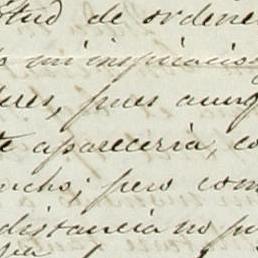 tud de ordene
mi inspiracio
res, pues aunq
te apareceria, co
ncho; pero com
distancia no p